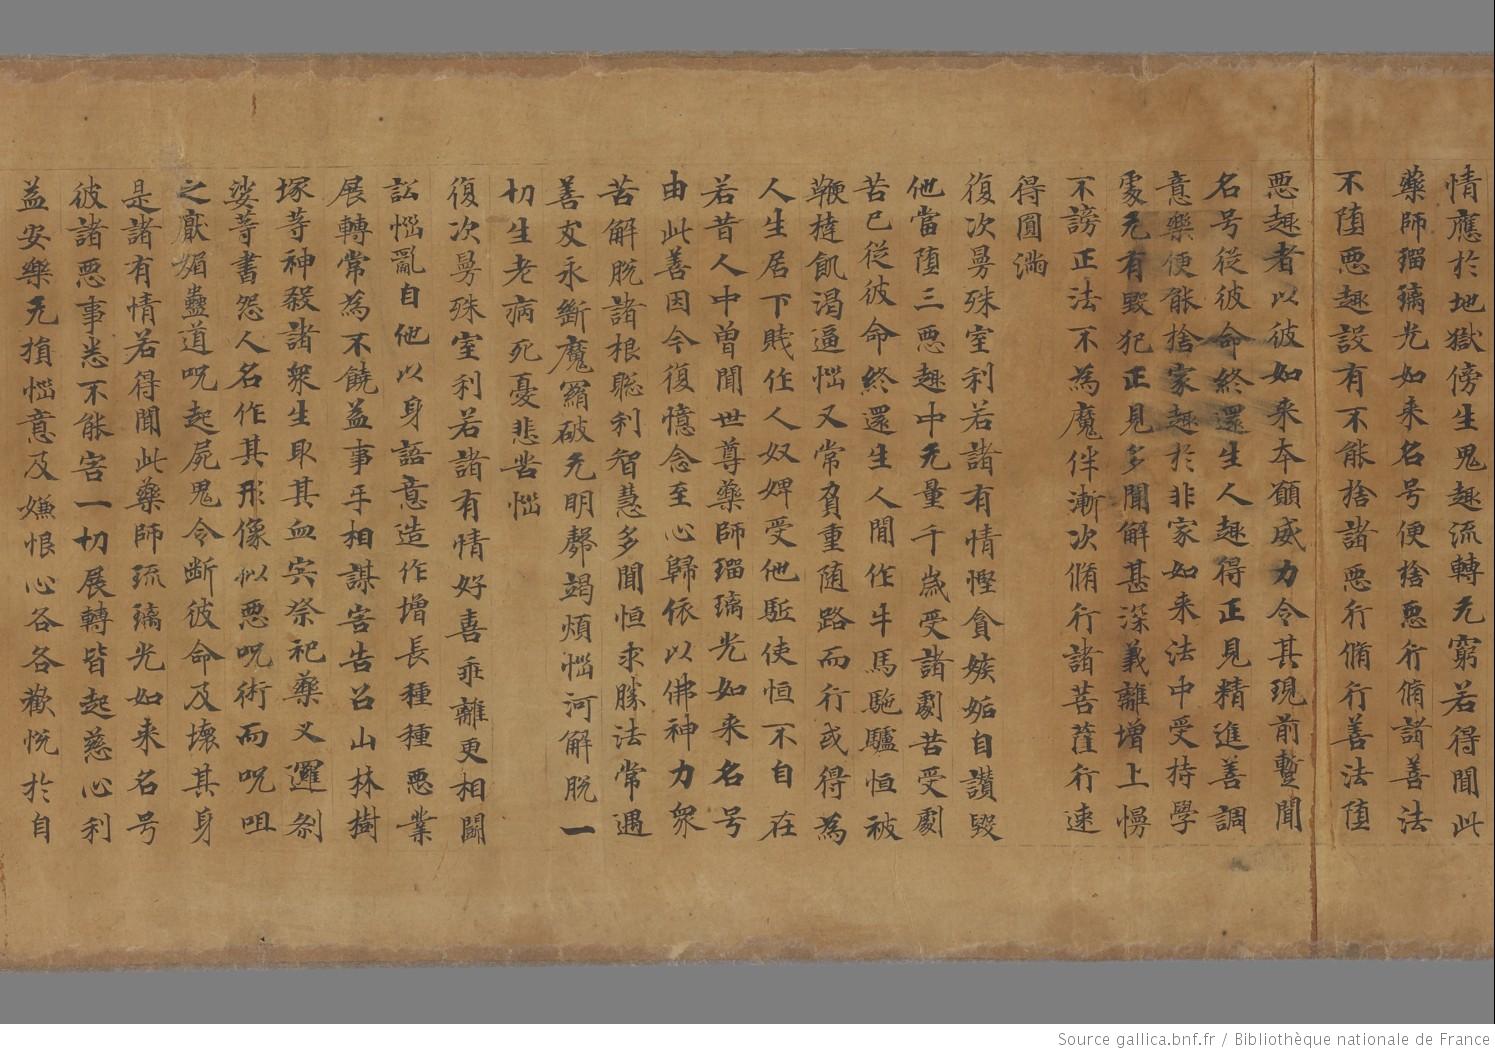 情應於地獄傍生鬼趣流轉无窮若得聞此
藥師瑠璃光如来名号便捨惡行脩諸善法
不堕惡趣設有不能捨諸惡行脩行善法堕
惡趣者以彼如来本願威力令其現前蹔聞
名号従彼命終還生人趣得正見精進善調
意樂便能捨家趣於非家如来法中受持學
處无有毀犯正見多聞解甚深義離增上慢
不謗正法不為魔伴漸次脩行諸菩薩行速
得圓滿
復次曼殊室利若諸有情慳貪嫉妬自讃毀
他當堕三惡趣中无量千歳受諸劇苦受劇
苦已従彼命終還生人間作牛馬駞驢恒被
鞭撻飢渴逼惱又常負重随路而行或得為
人生居下賤作人奴婢受他駈使恒不自在
若昔人中曽聞世尊藥師瑠璃光如来名号
由此善因今復憶念至心歸依以佛神力衆
苦解脱諸根聡利智慧多聞恒求勝法常遇
善友永斷魔羂破无明㲉竭煩惱河解脱一
切生老病死憂悲苦惱
復次曼殊室利若諸有情好喜乖離更相鬪
訟惱亂自他以身語意造作增長種種惡業
展轉常為不饒益事乎相謀害告召山林樹
塚等神殺諸衆生取其血宍祭祀藥叉邏刹
娑等書怨人名作其形像以惡呪術而呪咀
之厭媚蠱道呪起屍鬼令断彼命及壞其身
是諸有情若得聞此藥師琉璃光如来名号
彼諸惡事悉不能害一切展轉皆起慈心利
益安樂无損惱意及嫌恨心各各歡恱於自